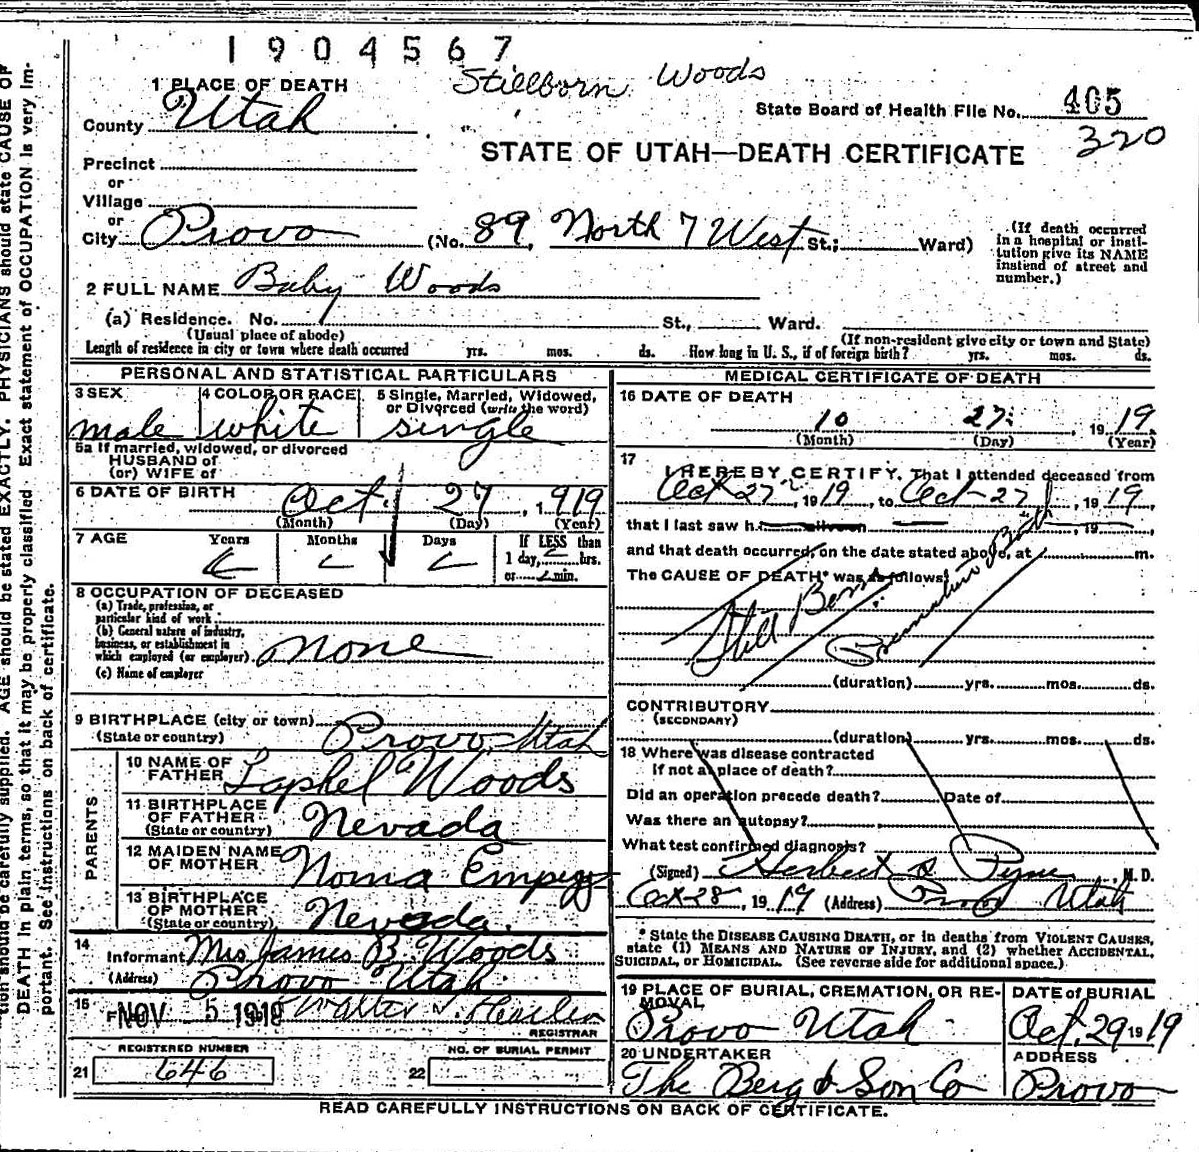 1904567
Stillborn Woods
1 PLACE OF DEATH
State Board of Health File No. 405
County Utah
320
STATE OF UTAH—DEATH CERTIFICATE
Precinct
or
Village
or
City Provo (No. 89, North 7 West St.; Ward)
(If death occurred in a hospital or institution give its NAME instead of street and number.)
2 FULL NAME Baby Woods
(a) Residence. No. St., Ward.
(Usual place of abode) (If non-resident give city or town and State)
Length of residence in city or town where death occurred yrs. mos. ds. How long in U. S., if of foreign birth? yrs. mos. ds.
PERSONAL AND STATISTICAL PARTICULARS
3 SEX 4 COLOR OR RACE 5 Single, Married, Widowed, or Divorced (write the word)
male white single
5a If married, widowed, or divorced
HUSBAND of
(or) WIFE of
6 DATE OF BIRTH Oct. 27, 1919
(Month) (Day) (Year)
7 AGE Years Months Days If LESS than
1 day, hrs.
or min.
8 OCCUPATION OF DECEASED
(a) Trade, profession, or
particular kind of work
(b) General nature of industry,
business, or establishment in
which employed (or employer) none
(c) Name of employer
9 BIRTHPLACE (city or town)
(State or country) Provo Utah
PARENTS
10 NAME OF
FATHER Woods
11 BIRTHPLACE
OF FATHER
(State or country) Nevada
12 MAIDEN NAME
OF MOTHER Noma
13 BIRTHPLACE
OF MOTHER
(State or country) Nevada.
14
Informant Mrs James B. Woods
(Address) Provo Utah
15 NOV 5 1919 Walter
REGISTRAR
REGISTERED NUMBER NO. OF BURIAL PERMIT
21 646 22
MEDICAL CERTIFICATE OF DEATH
16 DATE OF DEATH
10 27, 1919
(Month) (Day) (Year)
17
I HEREBY CERTIFY, That I attended deceased from
Oct 27, 1919, to Oct-27, 1919
that I last saw h alive on , 19
and that death occurred, on the date stated above, at m.
The CAUSE OF DEATH* was as follows:
Still Born Premature Birth
(duration) yrs. mos. ds.
CONTRIBUTORY
(SECONDARY)
(duration) yrs. mos. ds.
18 Where was disease contracted
if not at place of death?
Did an operation precede death? Date of
Was there an autopsy?
What test confirmed diagnosis?
(Signed) Herbert S Pyne, M. D.
Oct-28, 1919 (Address) Provo Utah
* State the DISEASE CAUSING DEATH, or in deaths from VIOLENT CAUSES,
state (1) MEANS AND NATURE OF INJURY, and (2) whether ACCIDENTAL,
SUICIDAL, or HOMICIDAL. (See reverse side for additional space.)
19 PLACE OF BURIAL, CREMATION, OR REMOVAL DATE of BURIAL
Provo Utah Oct. 29 1919
20 UNDERTAKER ADDRESS
The Berg & Son Co Provo
READ CAREFULLY INSTRUCTIONS ON BACK OF CERTIFICATE.
tion should be carefully supplied. AGE should be stated EXACTLY. PHYSICIANS should state CAUSE OF
DEATH in plain terms, so that it may be properly classified. Exact statement of OCCUPATION is very im-
portant. See instructions on back of certificate.